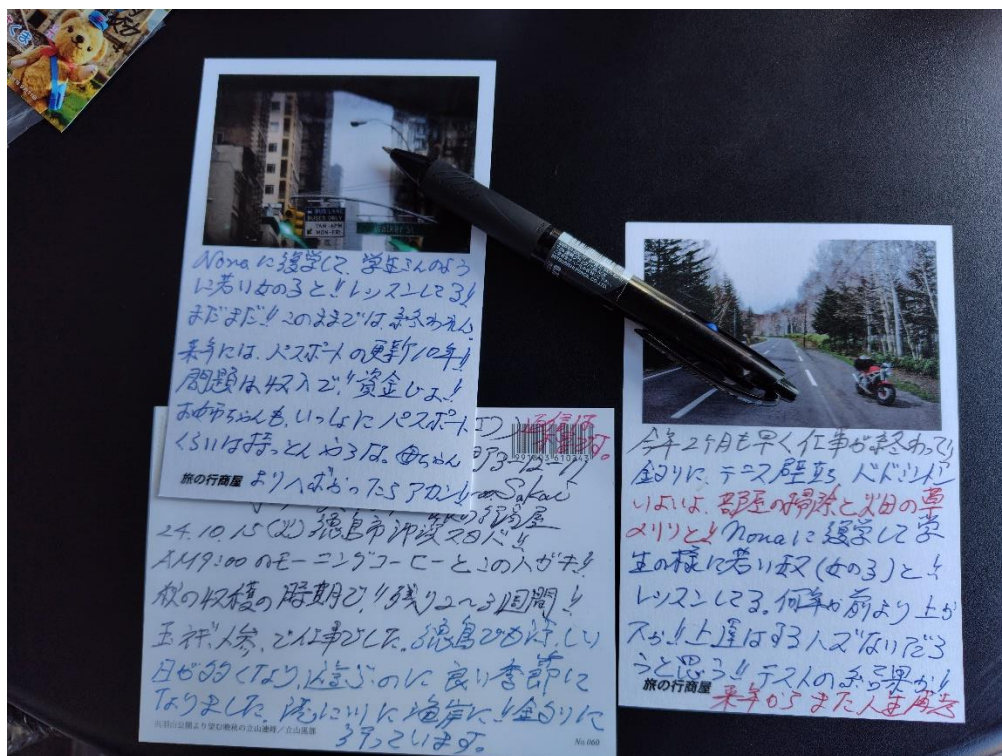 BUS LANE
BUSES ONLY
7AM-6PM
MON-FRI
Walker St
Novaに復学して、学生さんのよう
に若い女の子と!!レッスンしてる!!
まだまだ!!このままでは、終われん
来年には、パスポートの更新10年!!
問題は収入で!!資金じょ!!
お姉ちゃんも、いっしょにパスポート
くらいは持っとんやろな。母ちゃん
旅の行商屋
よりへばおったらアカン!!
返信は
不要です。
3-12-11
Sakai
24.10.15(火)徳島市沖浜
AM9:00のモーニングコーヒーとこのハガキ!!
秋の収穫の時期で!!残り2〜3週間!!
玉ネギ、人参、で仕事でした。徳島でも涼しい
日が多くなり、遊ぶのに良い季節に
なりました。港に川に海岸に!!釣りに
行っています。
呉羽山公園より望む晩秋の立山連峰/立山黒部
No.060
今年2ヶ月も早く仕事が終わって!!
釣りに、テニス壁立ち バドミントン
いよいよ、部屋の掃除と畑の草
メリリと!! Novaに復学して学
生の様に若い奴(女の子)と!!
レッスンしてる。何年か前より上か
下か!!上達はするハズないだろ
うと思う!! テストの結果か!!
旅の行商屋
来年からまた人生再考